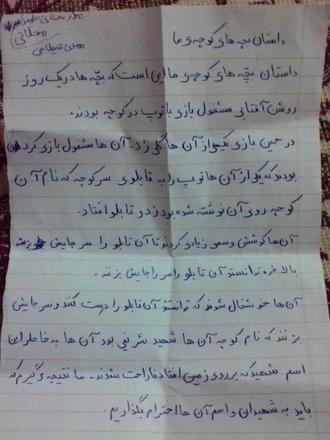 داستان بچه های کوچه ی ما
داستان بچّه های کوچه ی ما این است که بچّه ها در یک روز
روشن آفتابی مشغول بازی با توپ در کوچه بودند.
در حین بازی یکی از آن ها گل زد. آن ها مشغول بازی کردن
بودند که یکی از آن ها توپ را به تابلوی سر کوچه که نام آن
کوچه روی آن نوشته شده بود زد و تابلو افتاد.
آن ها کوشش و سعی زیادی کردند تا آن تابلو را سر جایش بزنند
بالاخره توانستند آن تابلو را سر جایش بزنند.
آن ها خوشحال شوند که توانستند آن تابلو را درست کنند و سر جایش
بزنند که نام کوچه آن ها شهید شریفی بود آن ها به خاطر این
اسم شهید که بر روی زمین افتاد ناراحت شدند. ما نتیجه می گیریم که
باید به شهیدان و اسم آن ها احترام بگذاریم.